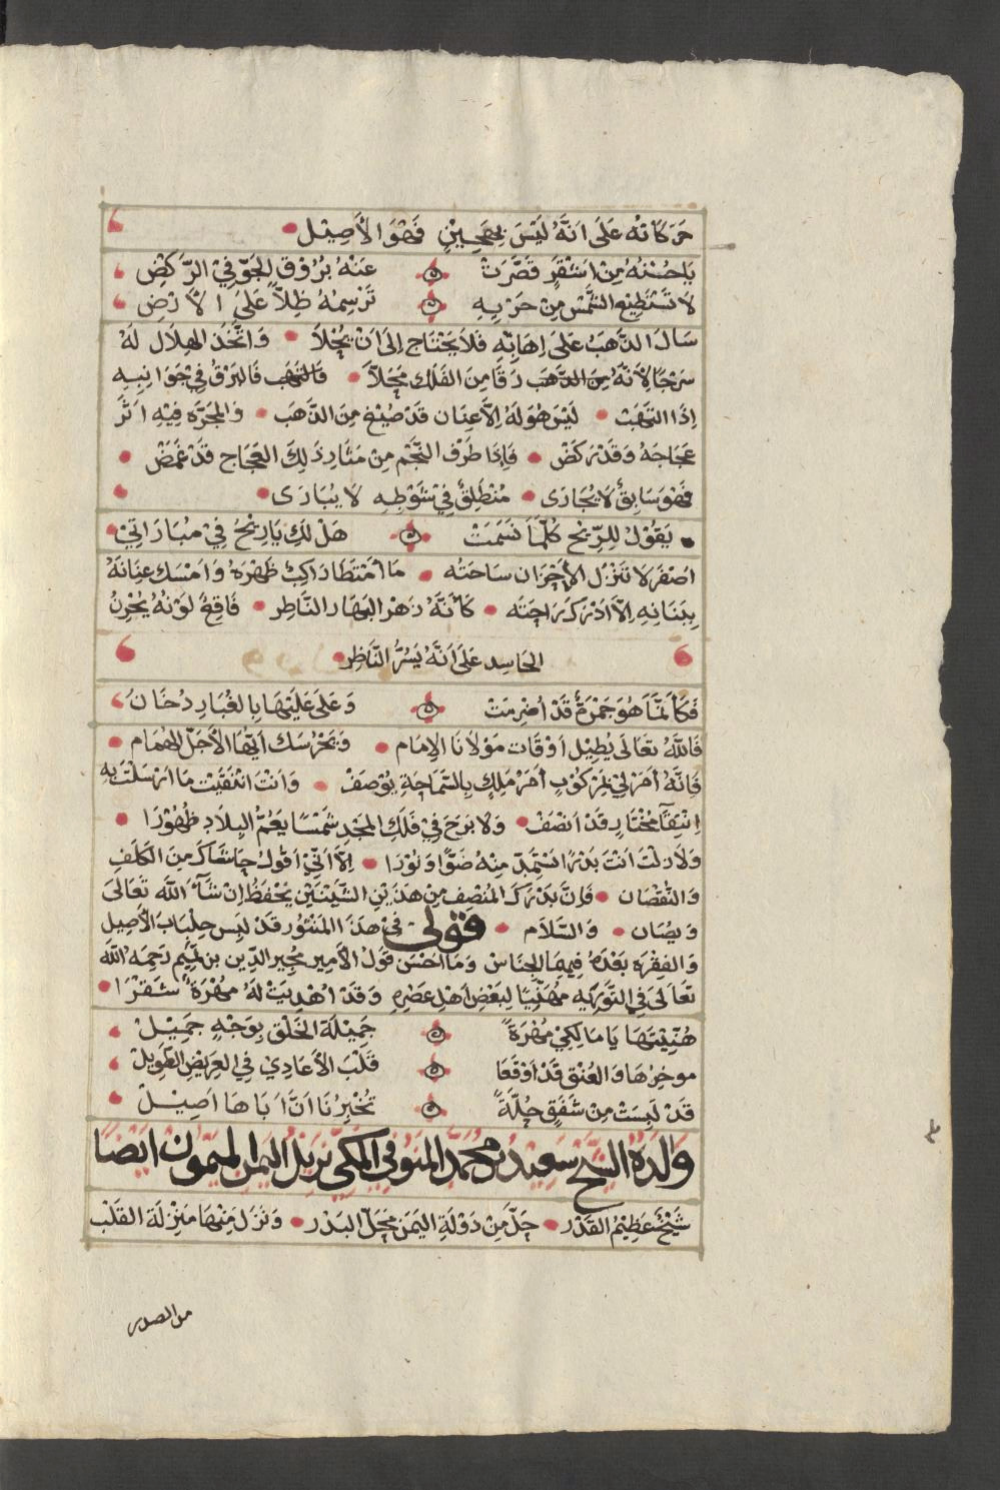 حَرَكَاتُه عَلَى اَنَّهُ لَيْسَ بِهَجِيْنٍ فَهُوَ الأَصِيْل
يَاحُسْنَهُ مِنْ اَشْقَرٍ قَصَّرَتْ عَنْهُ بُرُوْقُ الجَوِّ فِي الرَّكْضِ
لاَ تَسْتَطِيْعُ الشَّمْسُ مِنْ جَرْيِهِ تَرْسِمُهُ ظِلاًّ عَلَى الأَرْضِ
سَالَ الذَّهَبُ عَلَى اِهَابِهِ فَلاَ يَحْتَاجُ اِلَى اَنْ يُحْلاَ وَاتَّخَذَ الهِلاَلَ لَهُ
سَرْجًا لِاَنَّهُ مِنَ الذَّهَبِ رَقَا مِنَ الفَلَكِ مَحَلاًّ فَالبَرْقُ فِيْ جَوَانِبِهِ
اِذَا الْتَهَبَتْ لَيْسَ هُوَ لَهُ اِلاَّ عِنَان قَدْ صُبِغَ مِنَ الذَّهَبِ وَالمَجَرَّه فِيْهِ اَثَرُ
عَجَاجَهُ وَقَدْ رَكَضْ فَاِذَا طَرْفُ النَّجْمِ مِنْ مَثَارِ ذَلِكَ العَجَاجِ قَدْ غَمَضْ
فَهْوَ سَابِقٌ لاَ يُجَارَى مُنْطَلِقٌ فِيْ شَوْطِهِ لاَ يُبَارَى
يَقُوْلُ لِلرِّيْحِ كُلَّمَا نَسَمَتْ هَلْ لَكِ يَا رِيْحُ فِيْ مُبَارَاتِيْ
اَصْفَر لاَ تَنْزِلُ الأَحْزَان سَاحَتَه مَا امْتَطَا رَاكِبٌ ظَهْرَهُ وَاَمْسَكَ عِنَانَهُ
بِبَنَانِهِ اِلاَّ اَدْرَكَ رَاحَتَه كَاَنَّهُ زَهْرُ البَهَارِ النَّاضِر فَاقِعٌ لَوْنُهُ يُحْزِنُ
الحَاسِد عَلَى اَنَّهُ يَسُرُّ النَّاظِر
فَكَاَنَّمَا هُوَ جَمْرَةٌ قَدْ اُضْرِمَتْ وَعَلَى عَلَيْهَا بِالغُبَارِ دُخَانُ
فَاللهُ تَعَالَى يُطِيْل اَوْقَات مَوْلاَنَا الاِمَام وَيَحْرُسُكَ اَيُّهَا الأَجَلّ الهُمَام
فَاِنَّهُ اَهْدَى لِيْ خَيْرَ مَرْكُوْبٍ اَهْدَاهُ مَلِكٌ بِالسَّمَاحَةِ يُوْصَفْ وَاَنْتَ انْتَقَيْتَ مَا اَرْسَلْتَ بِهِ
اِنْتِقَآءَ مُخْتَارٍ قَدْ اَنْصَفْ وَلاَ بَرِحَ فِيْ فَلَكِ المَجْدِ شَمْسًا يَعُمُّ البِلاَدَ ظُهُوْرًا
وَلاَ زِلْتَ اَنْتَ بَدْرًا تَسْتَمِدُّ مِنْهُ ضَوْءًا وَنُوْرًا اِلاَّ اَنِّيْ اَقُوْلُ حَاشَاكَ مِنَ الكَلَفِ
وَالنُّقْصَان فَاِنَّ بَدْرَكَ المُنْصِفَ مِنْ هَذَيْنِ الشَّيْئَيْنِ يُحْفَظُ اِنْ شَآءَ اللهُ تَعَالَى
وَيُصَان وَالسَّلاَم قَوْلِيْ فِيْ هَذَا المَنْثُوْرِ قَدْ لَبِسَ جِلْبَابَ الأَصِيْل
وَالفِقْرَةِ بَعْدَهُ فِيْهَا الجِنَاسُ وَمَا اَحْسَنَ قَوْلَ الأَمِيْرِ مُجِيْرِ الدِّيْنِ بْنِ تَمِيْمٍ رَحِمَهُ اللهُ
تَعَالَى فِي التَّوْرِيَه مُهَنِّيًا لِبَعْضِ اَهْلِ عَصْرِهِ وَقَدْ اُهْدِيَتْ لَهُ مُهْرَةٌ شَقْرَا
هُنِّيْتَهَا يَا مَالِكِيْ مُهْرَةً جَمِيْلَةَ الخَلْقِ بِوَجْهٍ جَمِيْلْ
مُوخِرُهَا وَالعُنْقُ قَدْ اَوْقَعَا قَلْبَ الأَعَادِيْ فِي العَرِيْضِ الطَّوِيْلْ
قَدْ لَبِسَتْ مِنْ شَفَقٍ حُلَّةً تُخْبِرُنَا اَنَّ اَبَاهَا اَصِيْلْ
وَلَدُهُ الشَّيْخ سَعِيْد بْن مُحَمَّد المَنُوْفِي المَكِّي نَزِيْل اليَمَن المَيْمُوْن اَيْضًا
شَيْخٌ عَظِيْمُ القَدْر حَلَّ مِنْ دَوْلَةِ اليَمَن مَحَلَّ البَدْر وَنَزَلَ مِنْهَا مَنْزِلَةَ القَلْبِ
من الصدر